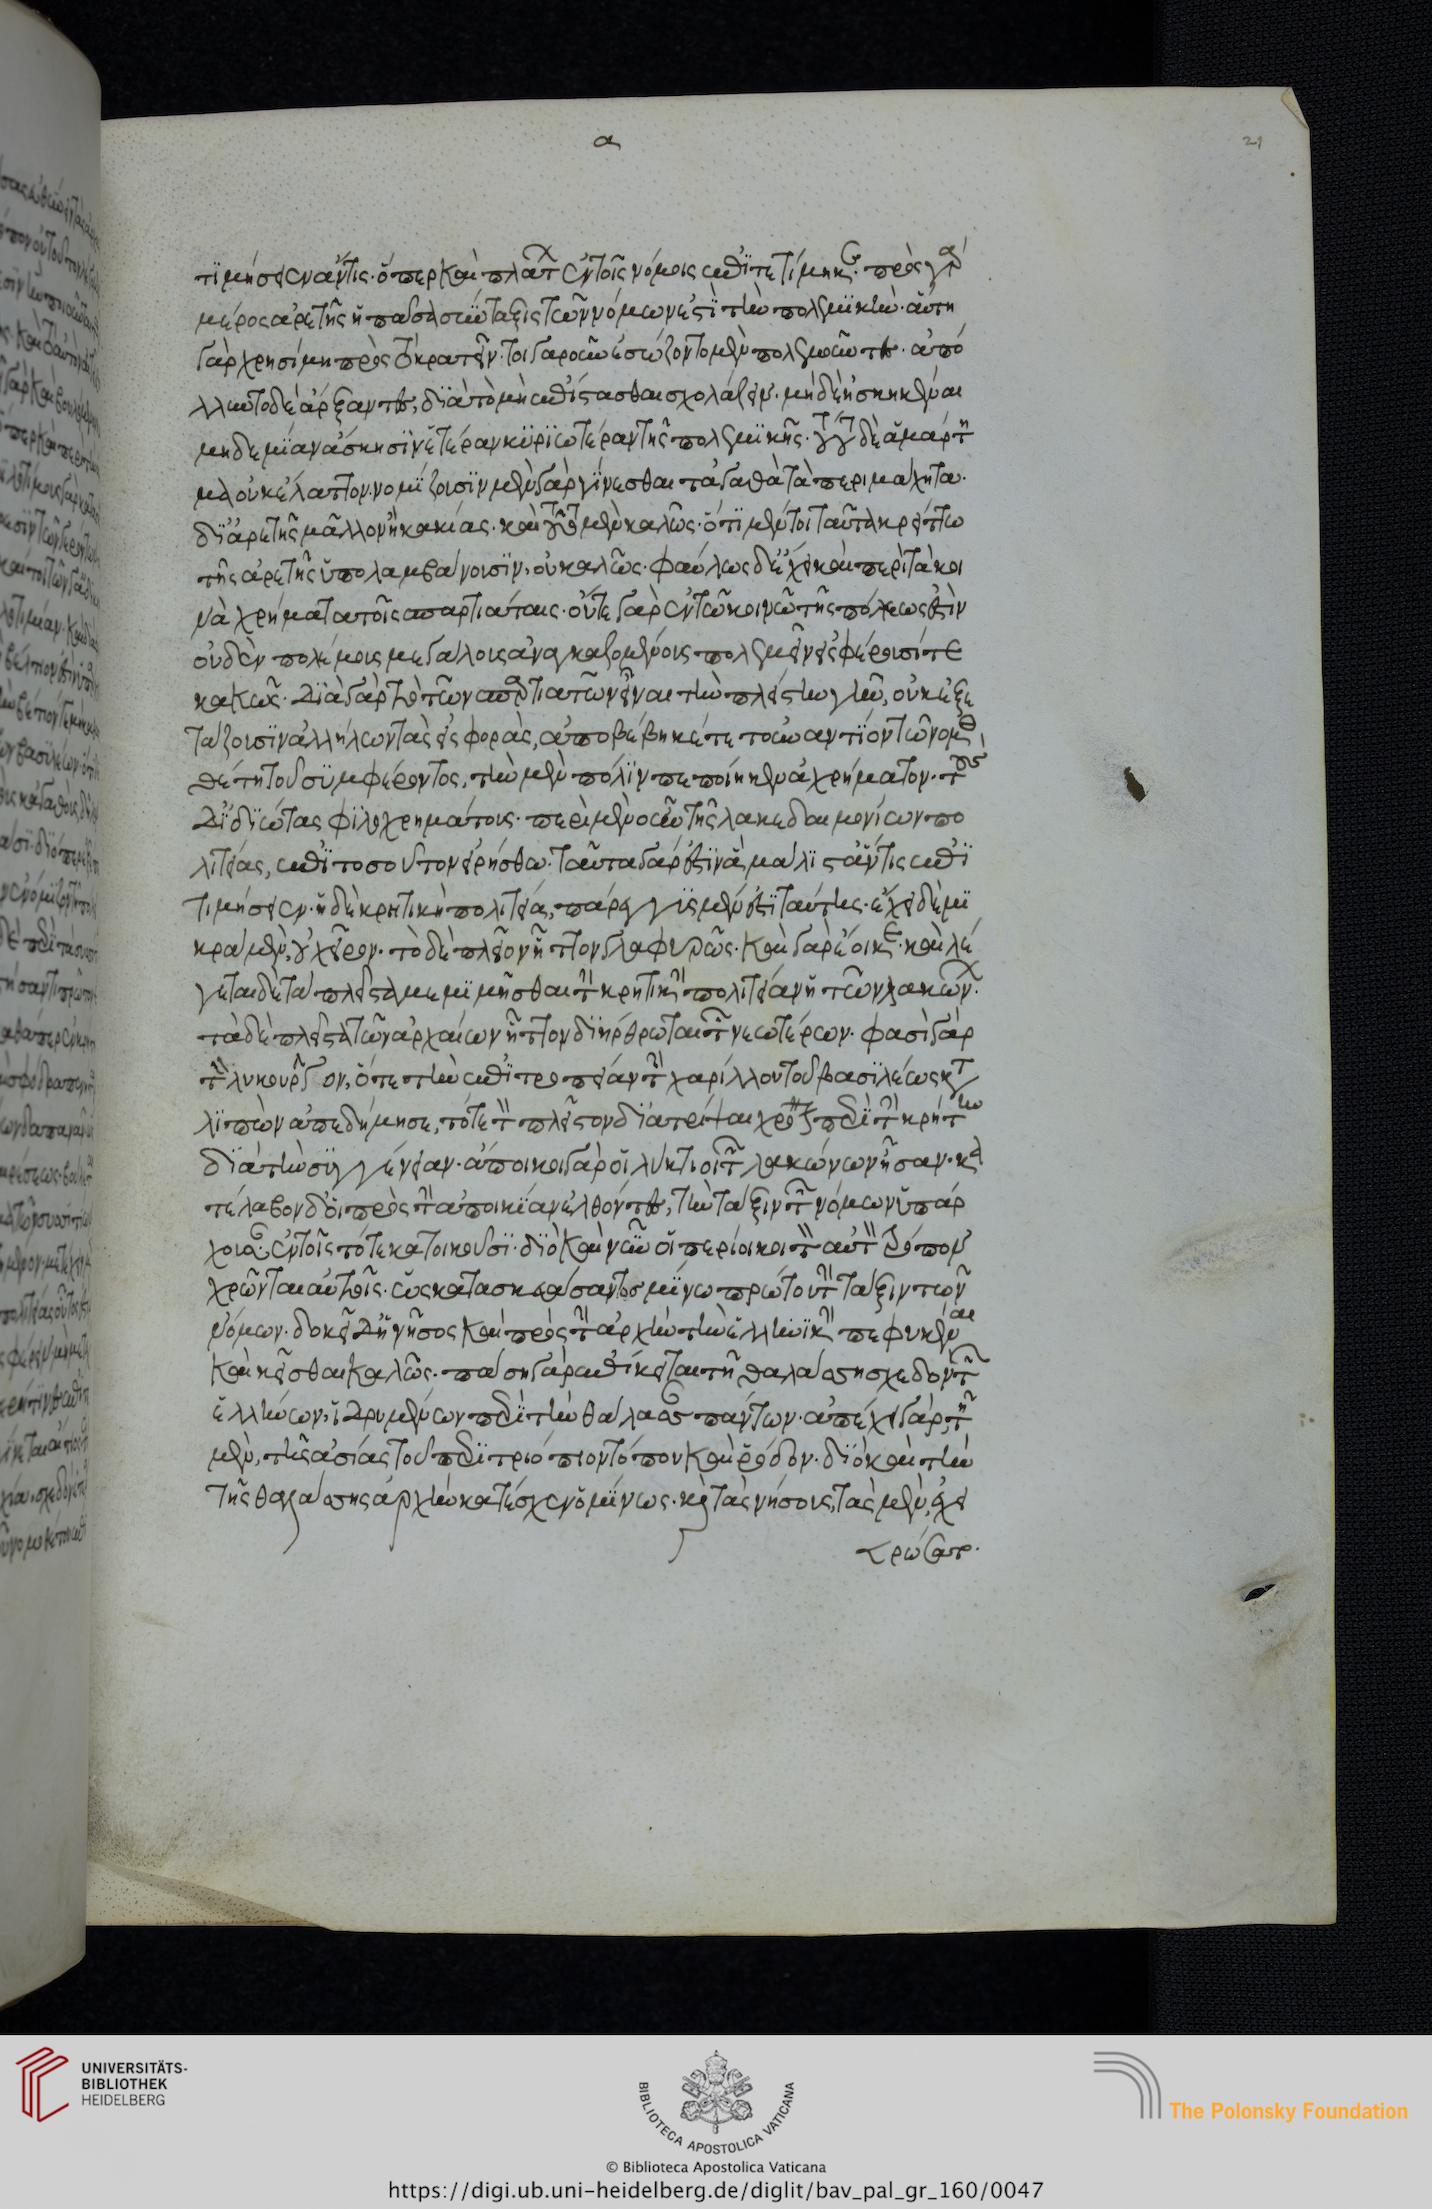 α
21
τιμήσειεν ἄν τις. ὅπερ καὶ πλάτ ἐν τοῖς νόμοις ἐπιτετίμηκε. πρὸς γὰρ
μέρος ἀρετῆς ἡ πᾶσα σύνταξις τῶν νόμων ἐστὶ τὴν πολεμικήν. αὕτη
γὰρ χρησίμη πρὸς τὸ κρατεῖν. τοιγαροῦν ἐσώζοντο μὲν πολεμοῦντες. ἀπώ
λλυντο δὲ ἄρξαντες, διὰ τὸ μὴ ἐπίστασθαι σχολάζειν. μηδὲ ἠσκηκέναι
μηδεμίαν ἄσκησιν ἑτέραν κυριωτέραν τῆς πολεμικῆς. τούτου δὲ ἁμάρτη
μα οὐκ ἔλαττον. νομίζουσιν μὲν γὰρ γίνεσθαι τἀγαθὰ τὰ περιμάχητα.
δι ἀρετῆς μᾶλλον ἢ κακίας. καὶ τοῦτο μὲν καλῶς. ὅτι μέντοι ταῦτα κρείττω
τῆς ἀρετῆς ὑπολαμβάνουσιν, οὐ καλῶς. φαύλως δὲ ἔχει καὶ περὶ τὰ κοι
νὰ χρήματα τοῖς σπαρτιάταις. οὔτε γὰρ ἐν τῶ κοινῶ τῆς πόλεως ἐστὶν
οὐδὲν πολέμοις μεγάλοις ἀναγκαζομένοις πολεμεῖν εἰσφέρουσί τε
κακῶς. διὰ γὰρ τὸ τῶν σπαρτιατῶν εἶναι τὴν πλείστην γῆν, οὐκ ἐξε
τάζουσιν ἀλλήλων τὰς εἰσφοράς, ἀποβέβηκέ τε τοὐναντίον τῶ νομο
θέτη τοῦ συμφέροντος, τὴν μὲν πόλιν πεποίηκεν ἀχρήματον. τοὺς
δ ἰδιώτας φιλοχρημάτους. περὶ μὲν οὖν τῆς λακεδαιμονίων πο
λιτείας, ἐπὶ τοσοῦτον εἰρήσθω. ταῦτα γάρ ἐστιν ἃ μάλιστ ἄν τις ἐπι
τιμήσειεν. ἡ δὲ κρητικὴ πολιτεία, πάρεγγυς μέν ἐστι ταύτης. ἔχει δὲ μι
κρὰ μὲν, οὐ χεῖρον. τὸ δὲ πλεῖον ἧττον γλαφυρῶς. καὶ γὰρ ἔοικε. καὶ λέ
γεται δὲ τὰ πλεῖστα μεμιμῆσθαι τὴν κρητικὴν πολιτείαν ἡ τῶν λακών.
τὰ δὲ πλεῖστα τῶν ἀρχαίων ἧττον διήρθρωται τῶν νεωτέρων. φασὶ γὰρ
τὸν λυκοῦργον, ὅτε τὴν ἐπιτροπείαν τὴν χαρίλλου τοῦ βασιλέως κατ
λιπὼν ἀπεδήμησε, τότε τὸν πλεῖστον διατρίψαι χρόνον περὶ τὴν κρήτην
διὰ τὴν συγγένειαν. ἄποικοι γὰρ οἱ λύκτιοι τῶν λακώνων ἦσαν. κα
τέλαβον δ οἱ πρὸς τὴν ἀποικίαν ἐλθόντες, τὴν τάξιν τῶν νόμων ὑπάρ
χουσαν ἐν τοῖς τότε κατοικοῦσι. διὸ καὶ νῦν οἱ περίοικοι τὸν αὐτὸν τρόπον
χρῶνται αὐτοῖς. ὡς κατασκευάσαντος μίνω πρώτου τὴν τάξιν τῶν
νόμων. δοκεῖ δ ἡ νῆσος καὶ πρὸς τὴν ἀρχὴν τὴν ἑλληνικὴν πεφυκέναι
καὶ κεῖσθαι καλῶς. πάση γὰρ ἐπίκειται τῆ θαλάσση σχεδὸν τῶν
ἑλλήνων, ἱδρυμένων περὶ τὴν θάλασσαν πάντων. ἀπέχει γὰρ, τῆ
μὲν, τῆς ἀσίας τοῦ περὶ τριόπιον τόπου καὶ ῥόδου. διὸ καὶ τὴν
τῆς θαλάσσης ἀρχὴν κατέσχεν ὁ μίνως. καὶ τὰς νήσους, τὰς μὲν, ἐχει
ρώσατο.
UNIVERSITÄTS-
BIBLIOTHEK
HEIDELBERG
BIBLIOTECA APOSTOLICA VATICANA
The Polonsky Foundation
© Biblioteca Apostolica Vaticana
https://digi.ub.uni-heidelberg.de/diglit/bav_pal_gr_160/0047